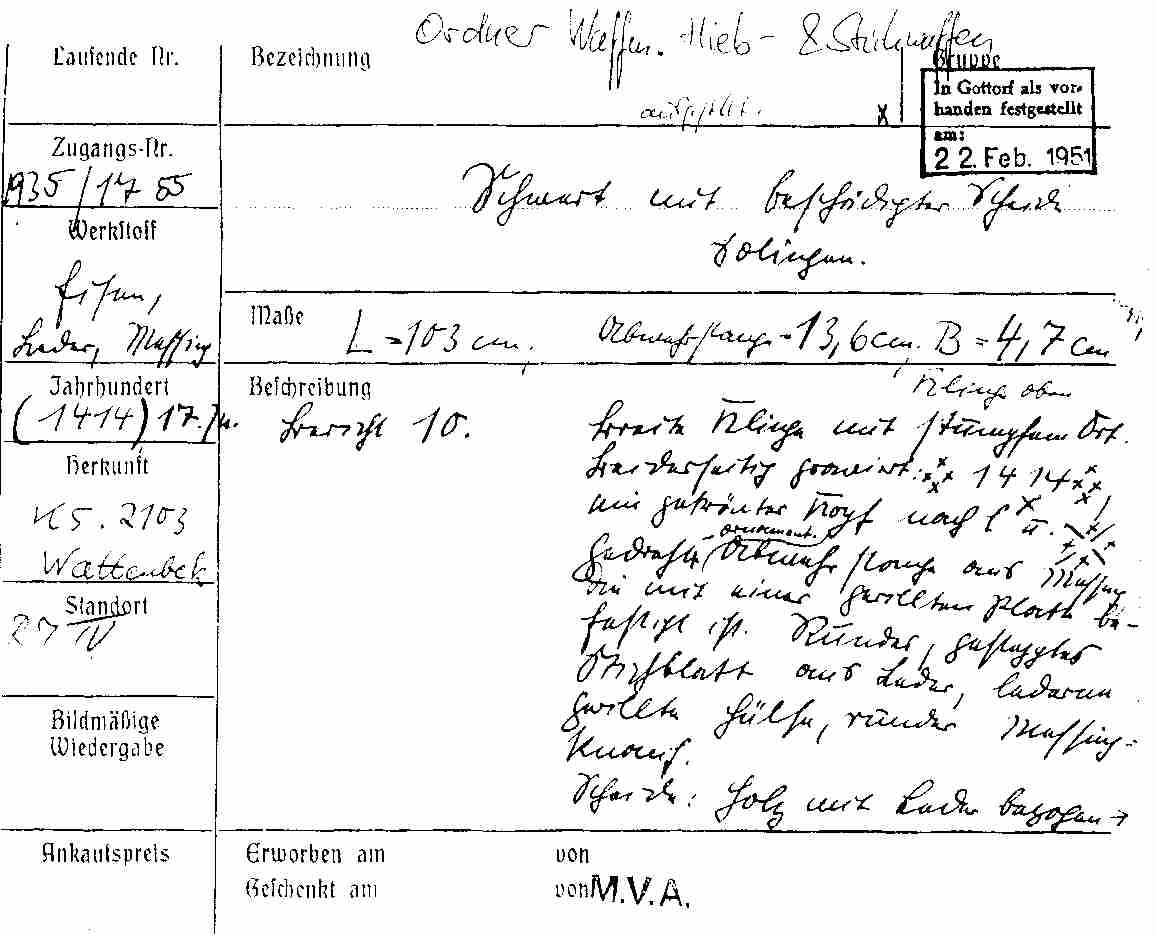 Ordner Waffen. Hieb- & Stichwaffen
Laufende Nr.
Bezeichnung
Gruppe
ausgefüllt.
x
In Gottorf als vor-
handen festgestellt
am:
22. Feb. 1951
Zugangs-Nr.
1935/1785
Schwert mit beschädigter Scheide
Solingen.
Werkstoff
Eisen,
Leder, Messing
Maße
L = 103 cm. Abwehrstange = 13,6 cm. B = 4,7 cm
Klinge oben
Jahrhundert
(1414) 17. Jh.
Beschreibung
Bericht 10.
Breite Klinge mit stumpfem Ort.
Beiderseitig graviert: 1414,
ein gekrönter Kopf nach l u.
ornament.
Gedrehte Abwehrstange aus Messing
die mit einer gerillten Platte be-
festigt ist. Runder, gesteppter
Stichblatt aus Leder, lederne
gerillte Hülse, runder Messing-
Knauf.
Scheide: Holz mit Leder bezogen →
Herkunft
KS. 2103
Wattenbek
Standort
Bildmäßige
Wiedergabe
Ankaufspreis
Erworben am von
Geschenkt am von M.V.A.